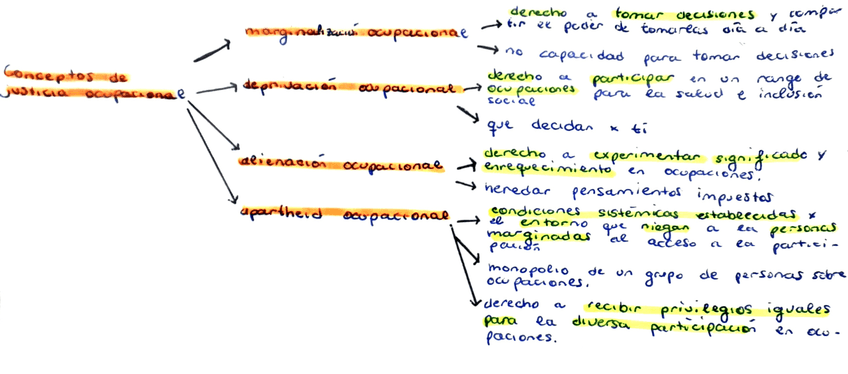 Conceptos de
justicia ocupacional
marginalización ocupacional
derecho a tomar decisiones y compar
tir el poder de tomarlas día a día
no capacidad para tomar decisiones
deprivación ocupacional
derecho a participar en un range de
ocupaciones para la salud e inclusión
social
que decidan x ti
alienación ocupacional
derecho a experimentar significado y
enrequecimiento en ocupaciones.
heredar pensamientos impuestos
apartheid ocupacional
condiciones sistémicas establecidas x
el entorno que niegan a la personas
marginadas al acceso a la partici-
pación
monopolio de un grupo de personas sobre
ocupaciones.
derecho a recibir privilegios iguales
para la diversa participación en ocu-
paciones.